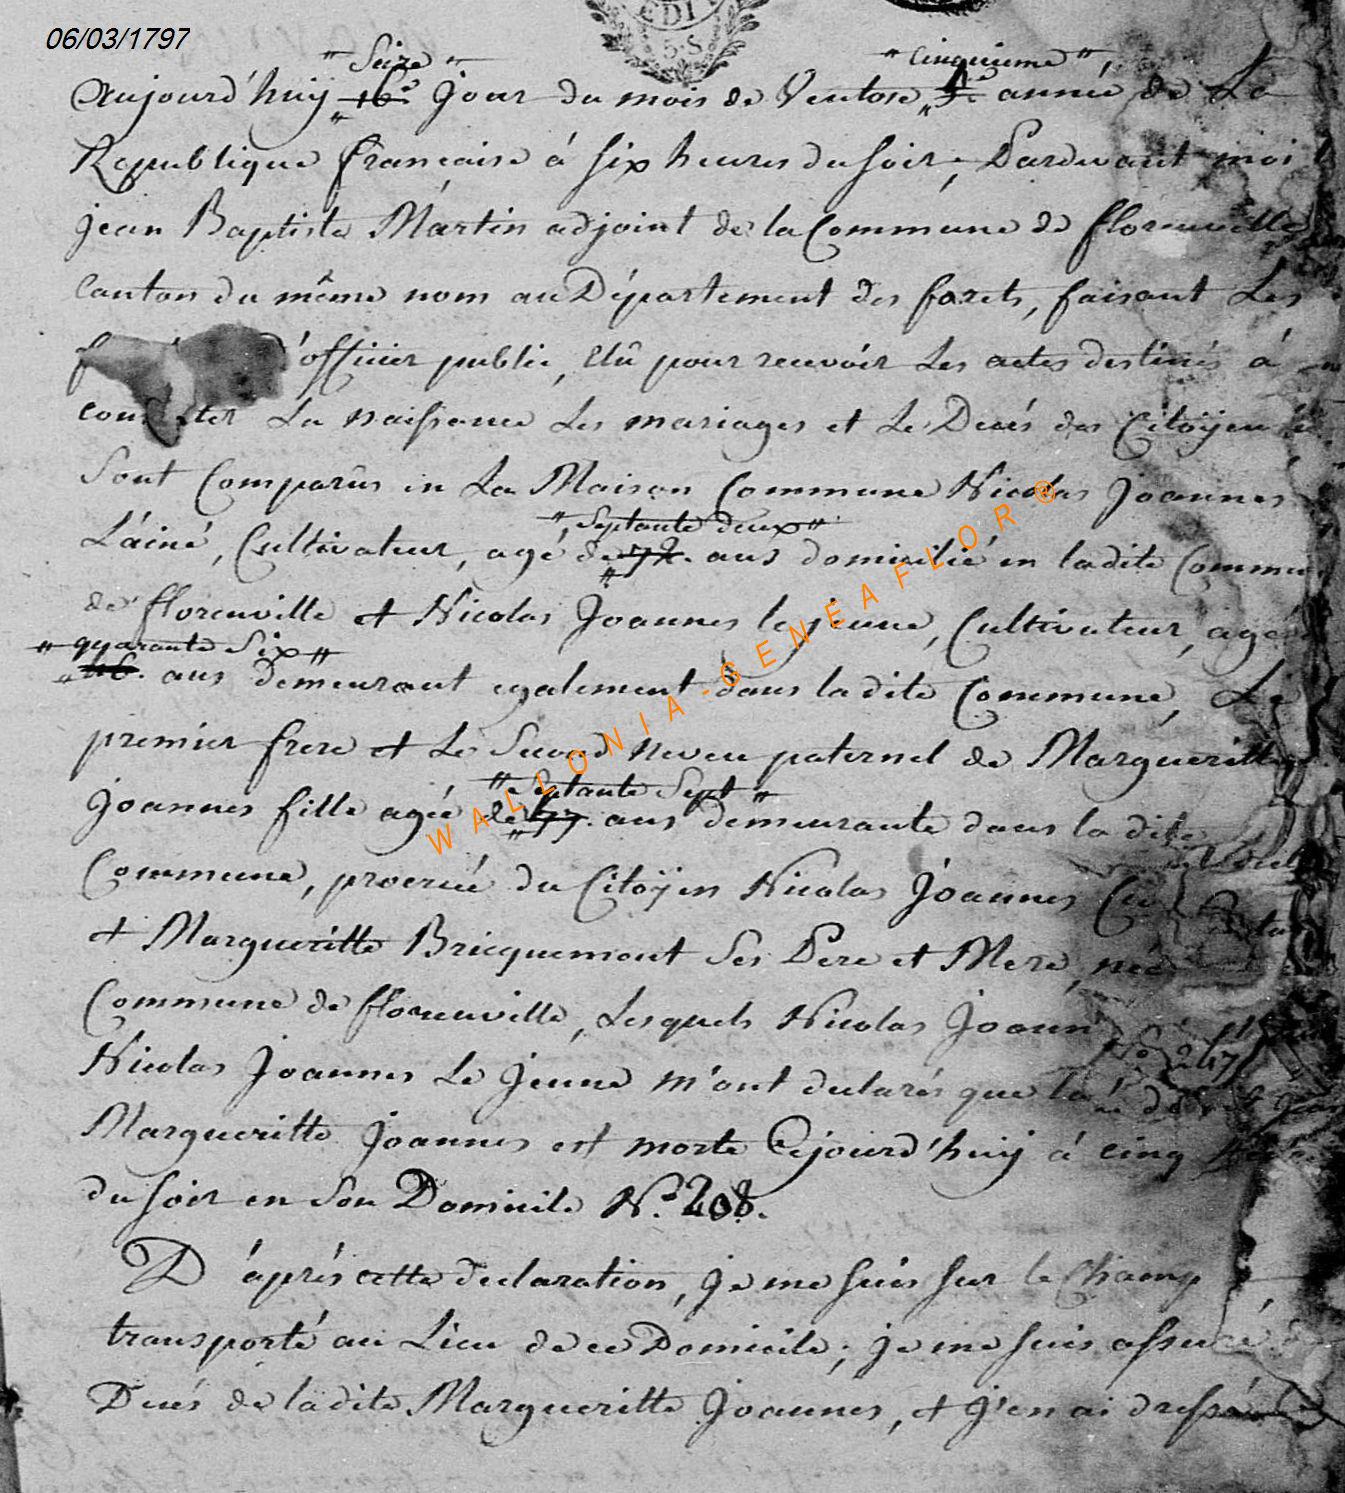 06/03/1797
EDIT
5·S
" Seize " " cinquieme ",
Aujourd'huy 16e. Jour du mois de Ventose 5e. année de La
Republique francaise á six heures du soir, Pardevant moi
jean Baptiste Martin adjoint de la Commune de florenville
Canton du même nom au Département des forets, faisant Les
d'officier public, Elû pour recevoir Les actes destinés á
La naissance Les mariages et Le Decés des Citoÿens
Sont Comparûs en La Maison Commune Nicolas Joannes
" Septante deux "
L'áiné, Cultivateur, agé de 72. ans domicilié en ladite Commune
de florenville et Nicolas Joannes le jeune, Cultivateur, agé
" quarante Six "
46. ans demeurant egalement dans la dite Commune, Le
premier frere et Le Second neveu paternel de Margueritte
" Septante Sept "
Joannes fille agée de 77. ans demeurante dans la dite
Commune, procreé du Citoÿen Nicolas Joannes
et Margueritte Bricquemont Ses Pere et Mere, née
Commune de florenville, Lesquels Nicolas
Nicolas Joannes Le Jeune m'ont declarés que la
No 247
Margueritte Joannes est morte Cejourd'huy á cinq
du soir en Son Domicile No. 208.
D'aprés cette declaration, je me suis sur le Champ
transporté au Lieu de ce Domicile; je me suis assuré
Decés de la dite Margueritte Joannes, et j'en ai dressé
WALLONIA-GENEAFLOR®